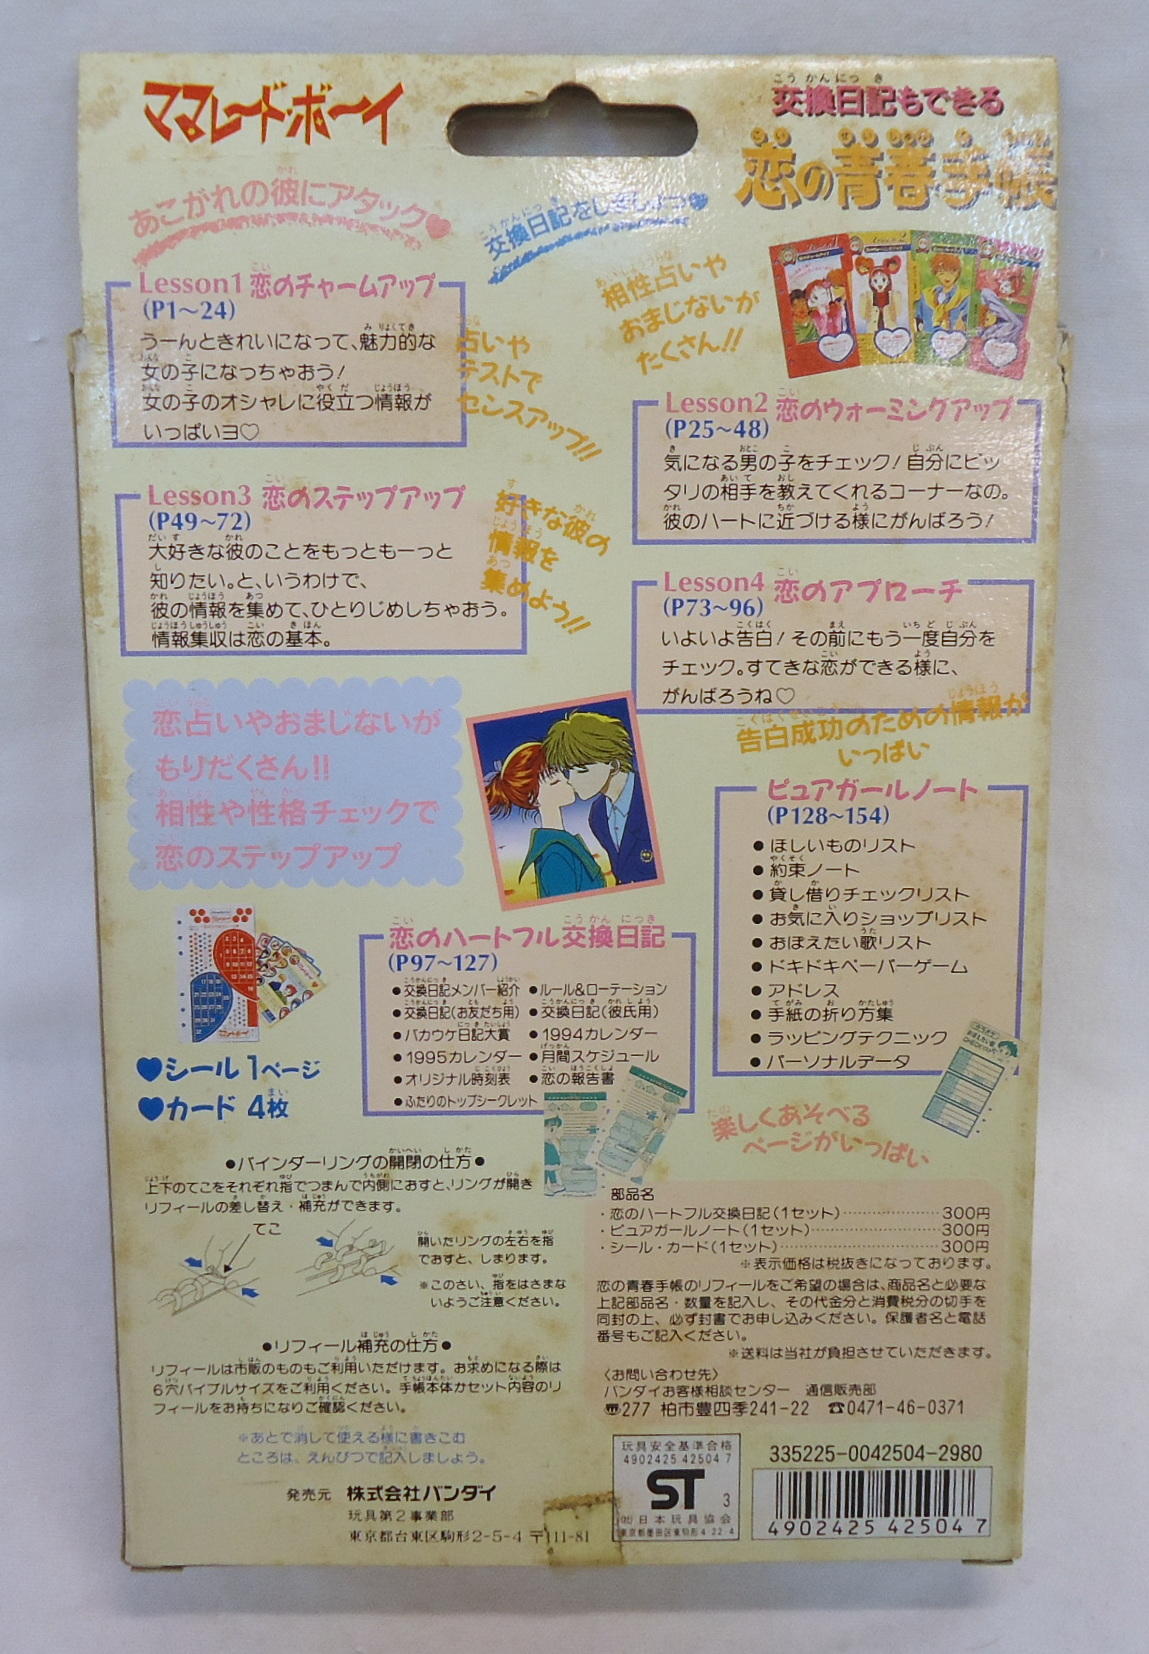 ママレード・ボーイ
交換日記もできる
恋の青春手帳
あこがれの彼にアタック♥
交換日記をしましょう♥
相性占いや
おまじないが
たくさん!!
Lesson1 恋のチャームアップ
(P1〜24)
うーんときれいになって、魅力的な
女の子になっちゃおう!
女の子のオシャレに役立つ情報が
いっぱいヨ♡
占いや
テストで
センスアップ!!
Lesson2 恋のウォーミングアップ
(P25〜48)
気になる男の子をチェック! 自分にピッ
タリの相手を教えてくれるコーナーなの。
彼のハートに近づける様にがんばろう!
Lesson3 恋のステップアップ
(P49〜72)
大好きな彼のことをもっともーっと
知りたい。と、いうわけで、
彼の情報を集めて、ひとりじめしちゃおう。
情報集収は恋の基本。
好きな彼の
情報を
集めよう!!
Lesson4 恋のアプローチ
(P73〜96)
いよいよ告白! その前にもう一度自分を
チェック。すてきな恋ができる様に、
がんばろうね♡
告白成功のための情報が
いっぱい
恋占いやおまじないが
もりだくさん!!
相性や性格チェックで
恋のステップアップ
ピュアガールノート
(P128〜154)
●ほしいものリスト
●約束ノート
●貸し借りチェックリスト
●お気に入りショップリスト
●おぼえたい歌リスト
●ドキドキペーパーゲーム
●アドレス
●手紙の折り方集
●ラッピングテクニック
●パーソナルデータ
恋のハートフル交換日記
(P97〜127)
●交換日記メンバー紹介 ●ルール&ローテーション
●交換日記(お友だち用) ●交換日記(彼氏用)
●バカウケ日記大賞 ●1994カレンダー
●1995カレンダー ●月間スケジュール
●オリジナル時刻表 ●恋の報告書
●ふたりのトップシークレット
♥シール 1ページ
♥カード 4枚
楽しくあそべる
ページがいっぱい
●バインダーリングの開閉の仕方●
上下のてこをそれぞれ指でつまんで内側におすと、リングが開き
リフィールの差し替え・補充ができます。
てこ
開いたリングの左右を指
でおすと、しまります。
※このさい、指をはさまな
いようご注意ください。
●リフィール補充の仕方●
リフィールは市販のものもご利用いただけます。お求めになる際は
6穴バイブルサイズをご利用ください。手帳本体かセット内容のリ
フィールをお持ちになりご確認ください。
※あとで消して使える様に書きこむ
ところは、えんぴつで記入しましょう。
発売元 株式会社バンダイ
玩具第2事業部
東京都台東区駒形2-5-4 〒111-81
部品名
・恋のハートフル交換日記(1セット)……………300円
・ピュアガールノート(1セット)……………300円
・シール・カード(1セット)……………300円
※表示価格は税抜きになっております。
恋の青春手帳のリフィールをご希望の場合は、商品名と必要な
上記部品名・数量を記入し、その代金分と消費税分の切手を
同封の上、必ず封書でお申し込みください。保護者名と電話
番号もご記入ください。
※送料は当社が負担させていただきます。
〈お問い合わせ先〉
バンダイお客様相談センター 通信販売部
〠277 柏市豊四季241-22 ☎0471-46-0371
玩具安全基準合格
4902425 42504 7
ST 3
(社)日本玩具協会
東京都墨田区東駒形4-22-4
335225-0042504-2980
4902425 425047